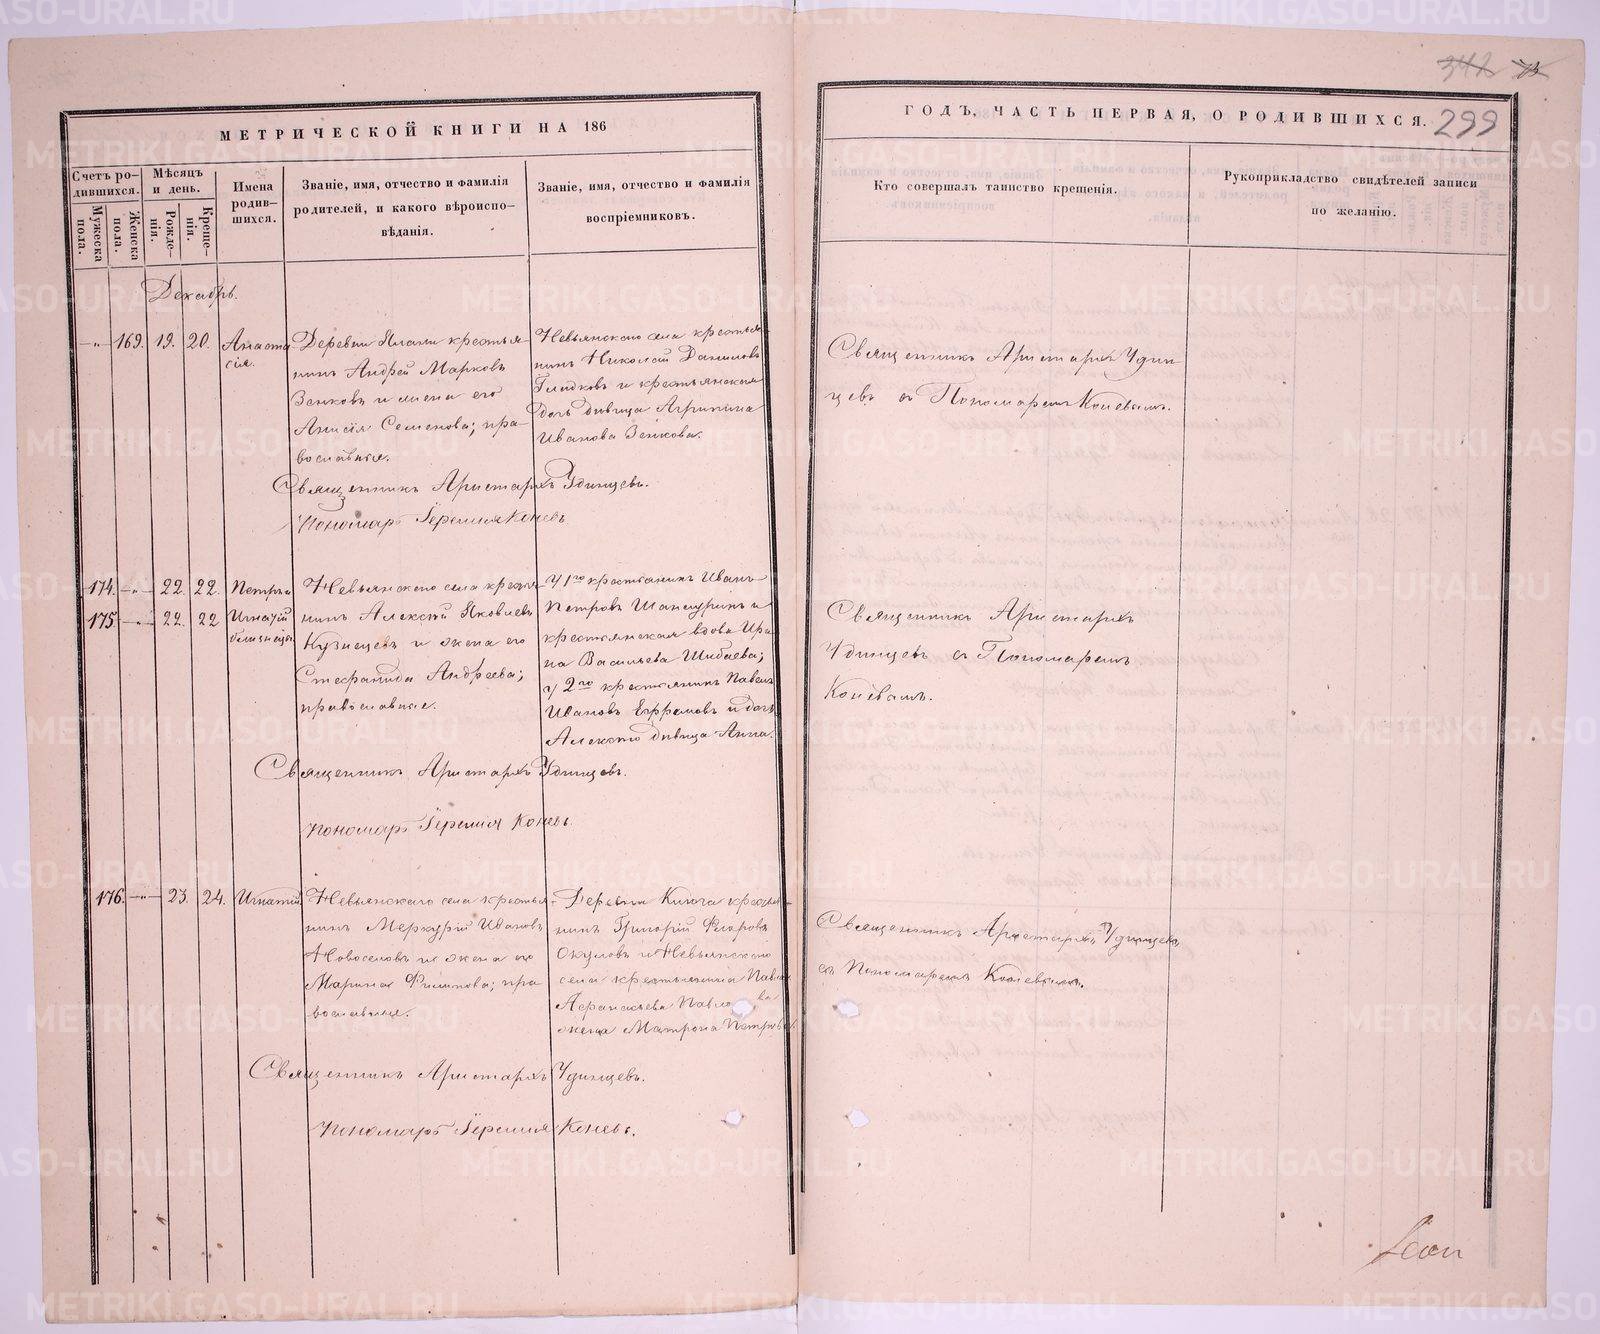 МЕТРИЧЕСКОЙ КНИГИ НА 186
Счетъ ро-
дившихся.
Мужеска
пола.
Женска
пола.
Мѣсяцъ
и день.
Рожде-
нія.
Креще-
нія.
Имена
родив-
шихся.
Званіе, имя, отчество и фамилія
родителей, и какого вѣроиспо-
вѣданія.
Званіе, имя, отчество и фамилія
воспріемниковъ.
Декабрь.
169. 19. 20.
Анаста
сія.
Деревни крестья-
нинъ Андрей Марковъ
Зенковъ и жена его
Анисія Семенова; пра-
вославные.
Невьянскаго села крестья-
нинъ Николай Даниловъ
Гладковъ и крестьянская
дочь дѣвица Агрипина
Иванова Зенкова.
Священникъ Аристархъ Удинцевъ.
Пономарь Іеремія Коневъ
174. 22. 22.
175. 22. 22
Петръ и
Игнатій
близнецы.
Невьянскаго села крестья-
нинъ Алексѣй Яковлевъ
Кузнецовъ и жена его
Стефанида Андреева;
православные.
У 1го крестьянинъ Иванъ
Петровъ Шансуринъ и
крестьянская вдова Ири
на Васильева Шибаева;
у 2го крестьянинъ Павелъ
Ивановъ Ефремовъ и дочь
Алексѣя дѣвица Анна.
Священникъ Аристархъ Удинцевъ.
Пономарь Іеремія Коневъ.
176. 23. 24.
Игнатій.
Невьянскаго села крестья-
нинъ Меркурій Ивановъ
Новоселовъ и жена его
Марина Филипова; пра
вославные.
Деревни Ключа крестья-
нинъ Григорій Федоровъ
Окуловъ и Невьянскаго
села крестьянина Павла
Афанасьева
жена Матрона Петрова.
Священникъ Аристархъ Удинцевъ.
Пономарь Іеремія Коневъ.
342
299
ГОДЪ, ЧАСТЬ ПЕРВАЯ, О РОДИВШИХСЯ.
Кто совершалъ таинство крещенія.
Рукоприкладство свидѣтелей записи
по желанію.
Священникъ Аристархъ Удин
цевъ съ Пономаремъ Коневымъ.
Священникъ Аристархъ
Удинцевъ съ Пономаремъ
Коневымъ.
Священникъ Аристархъ Удинцевъ
съ Пономаремъ Коневымъ.
METRIKI.GASO-URAL.RU